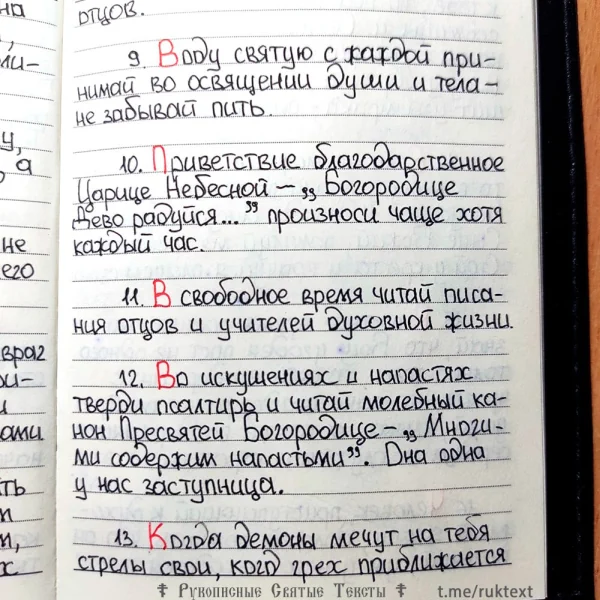 отцов.
9. Воду святую с каждой при-
нимай во освящении души и тела-
не забывай пить.
10. Приветствие благодарственное
Царице Небесной - „Богородице
Дево радуйся..." произноси чаще хотя
каждый час.
11. В свободное время читай писа-
ния отцов и учителей духовной жизни.
12. Во искушениях и напастях
тверди псалтирь и читай молебный ка-
нон Пресвятей Богородице - „Многи-
ми содержим напастьми". Она одна
у нас заступница.
13. Когда демоны мечут на тебя
стрелы свои, когд грех приближается
Рукописные Святые Тексты t.me/ruktext